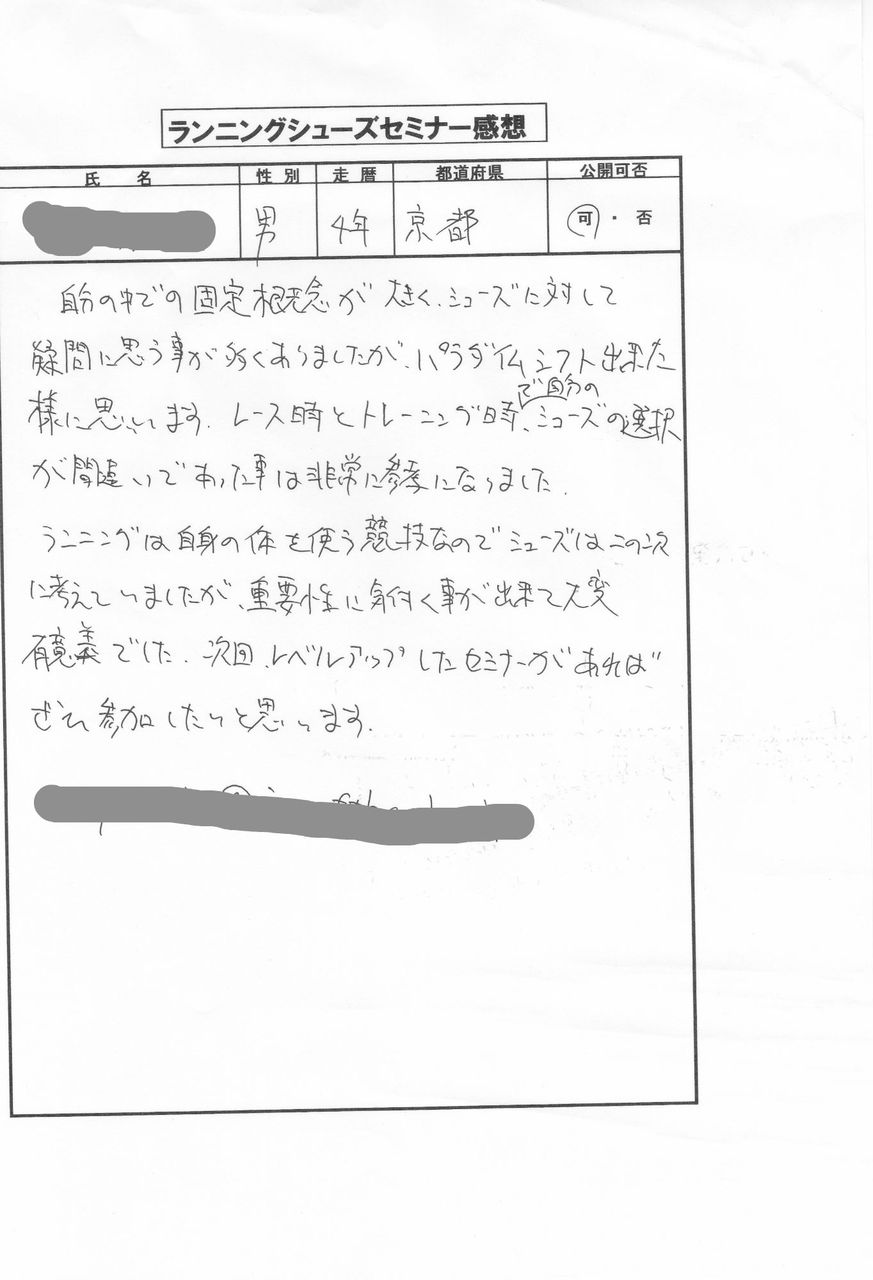 ランニングシューズセミナー感想
氏 名 性 別 走 暦 都道府県 公開可否
男 4年 京都 可 ・ 否
自分の中での固定概念が大きく、シューズに対して
疑問に思う事が多くありましたが、パラダイムシフト出来た
様に思います。レース時とトレーニング時、で自分のシューズの選択
が間違いであった事は非常に参考になりました。
ランニングは自身の体を使う競技なのでシューズはこの次
に考えていましたが、重要性に気付く事が出来て大変
有意義でした。次回、レベルアップしたセミナーがあれば
ぜひ参加したいと思います。